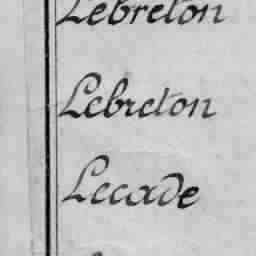 Lebreton
Lebreton
Lecade